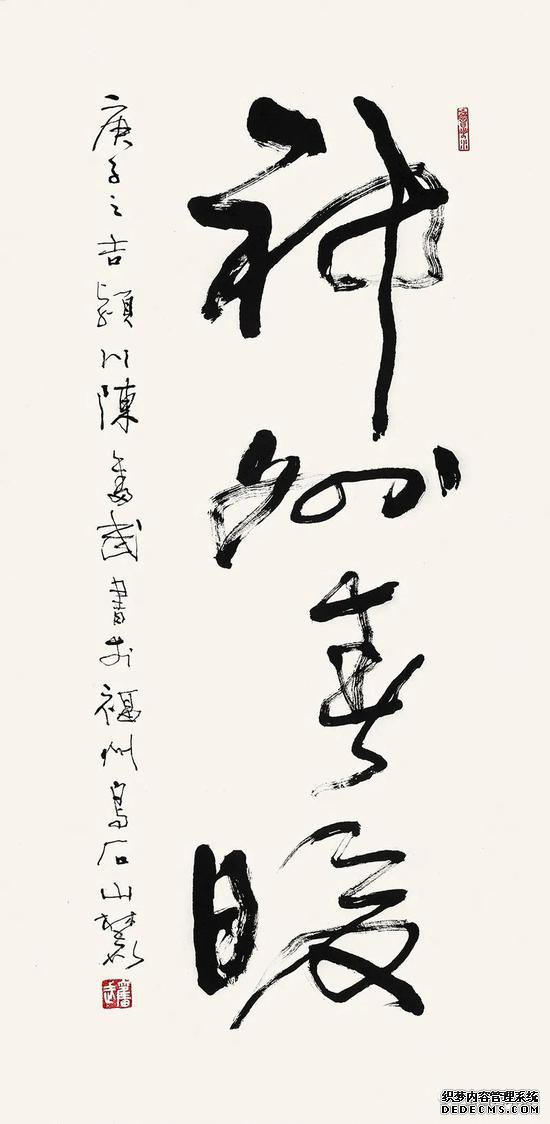 神州春暖
庚子之吉颖川陳奮武書於福州烏石山麓
织梦内容管理系统
DEDECMS.COM